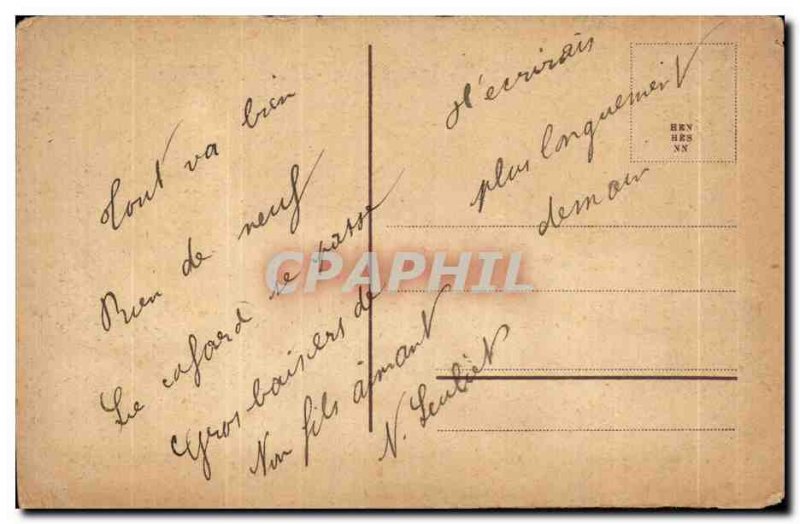 Tout va bien
Rien de neuf
Le cafard se passe
Gros baisers de
Ton fils aimant
N.
J'écrirais
plus longuement
demain
HEN
HÈS
NN
CPAPHIL